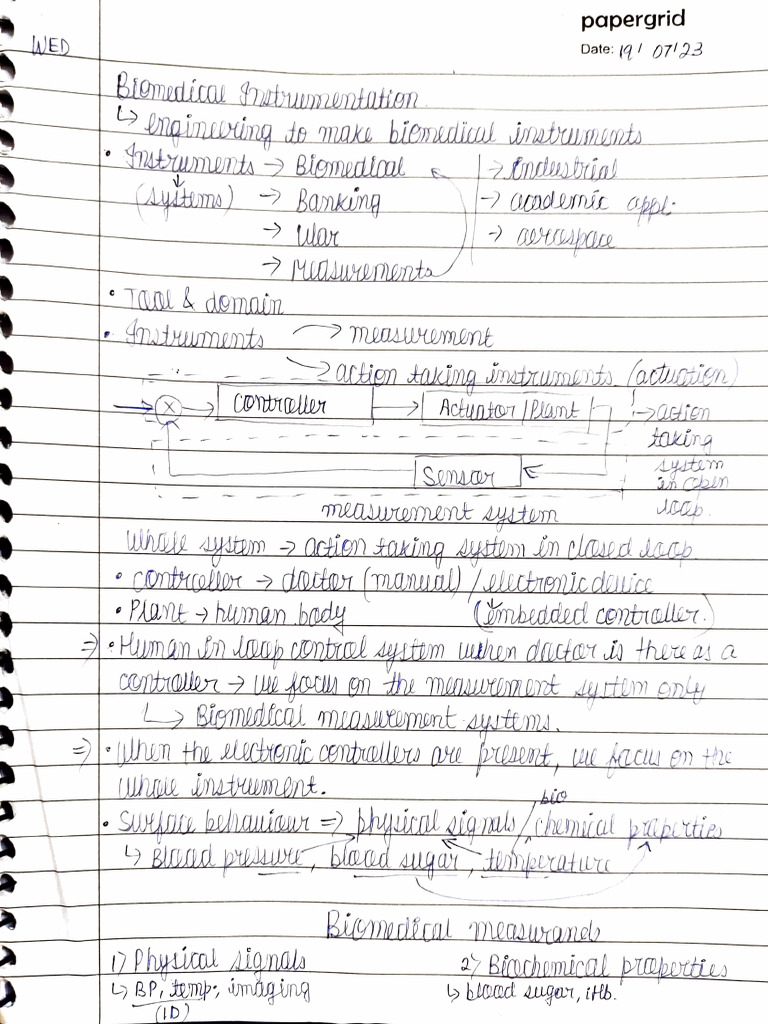 papergrid
WED
Date: 19/ 07/23
Biomedical Instrumentation
↳ engineering to make biomedical instruments
• Instruments → Biomedical → industrial
(systems) → Banking → academic appl.
→ War → aerospace
→ Measurements
• Tool & domain
• Instruments → measurement
→ action taking instruments (actuation)
→ X → Controller → Actuator/Plant → action
taking
Sensor system
in open
measurement system loop.
Whole system → action taking system in closed loop
• Controller → doctor (manual) / electronic device
• Plant → human body (embedded controller.)
⇒ • Human in loop control system when doctor is there as a
controller → we focus on the measurement system only
↳ Biomedical measurement systems.
⇒ • When the electronic controllers are present, we focus on the
whole instrument.
bio
• Surface behaviour ⇒ physical signals / chemical properties
↳ Blood pressure, blood sugar, temperature
Biomedical measurands
1) Physical signals 2) Biochemical properties
↳ BP, temp., imaging ↳ blood sugar, Hb.
(1D)